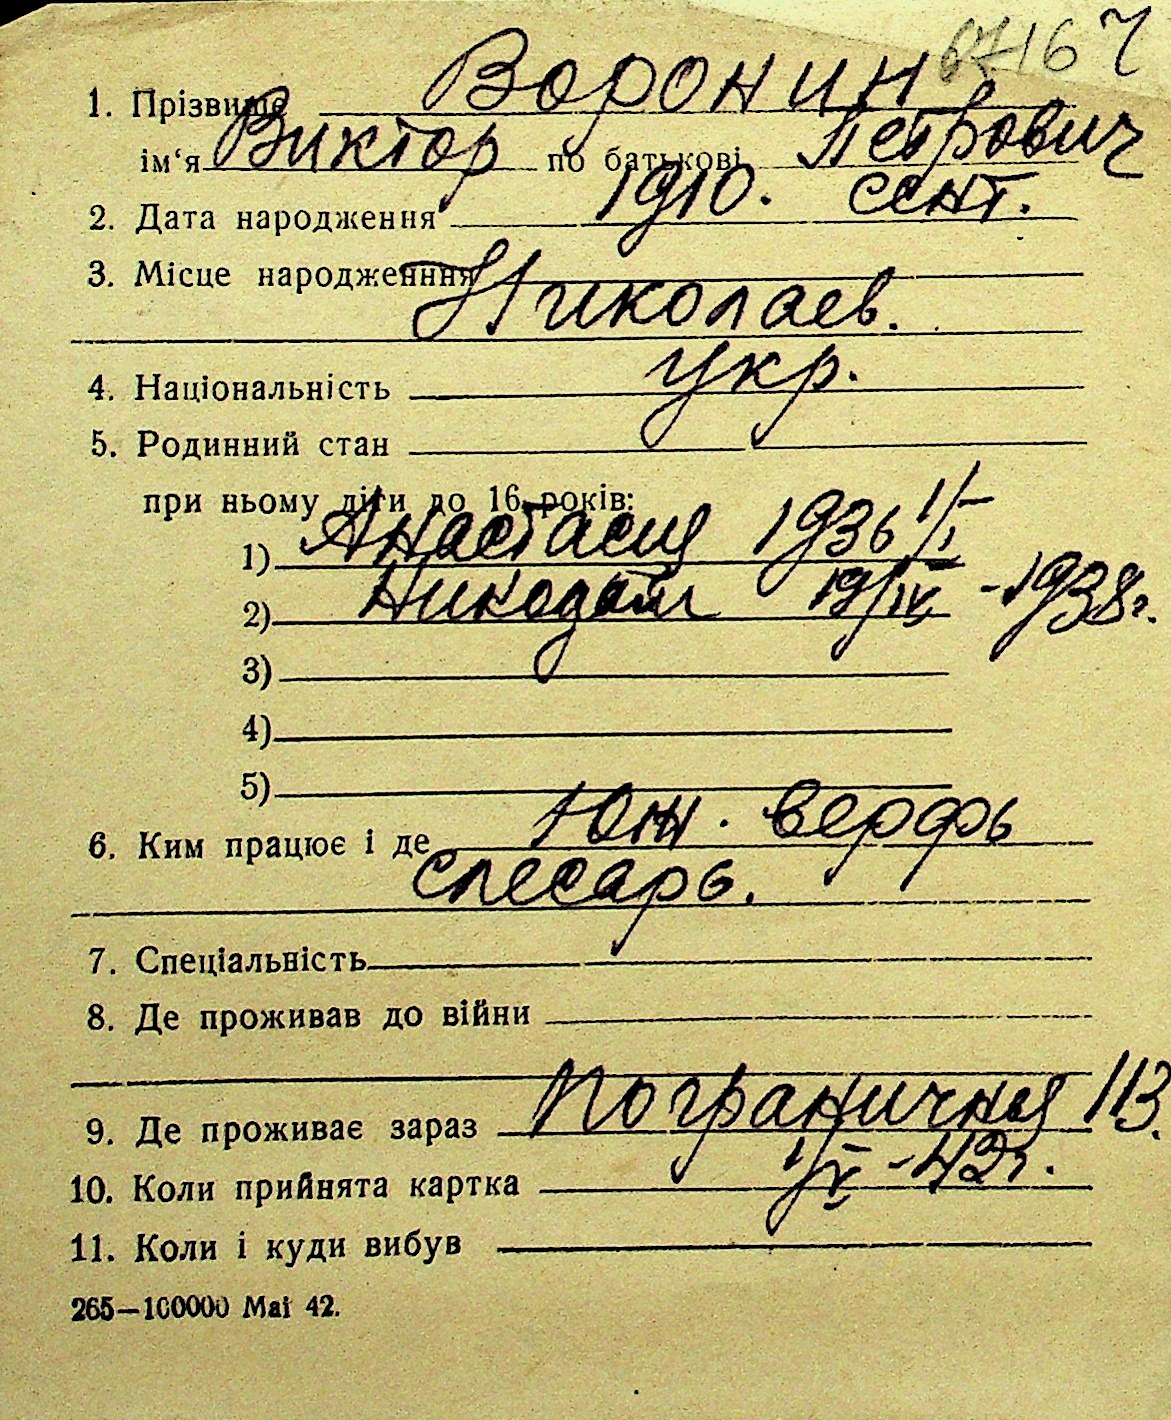 67167
1. Прізвище Воронин
ім‘я Виктор по батькові Петрович
2. Дата народження 1910. сент.
3. Місце народженння
Николаев.
4. Національність укр.
5. Родинний стан
при ньому діти до 16 років:
1) Анастасия 1936 1/I
2) Никодим 19/IV - 1938г.
3)
4)
5)
6. Ким працює і де Юж. верфь
слесарь.
7. Спеціальність
8. Де проживав до війни
9. Де проживає зараз Пограничная 113.
10. Коли прийнята картка 1/V - 42г.
11. Коли і куди вибув
265—100000 Mai 42.